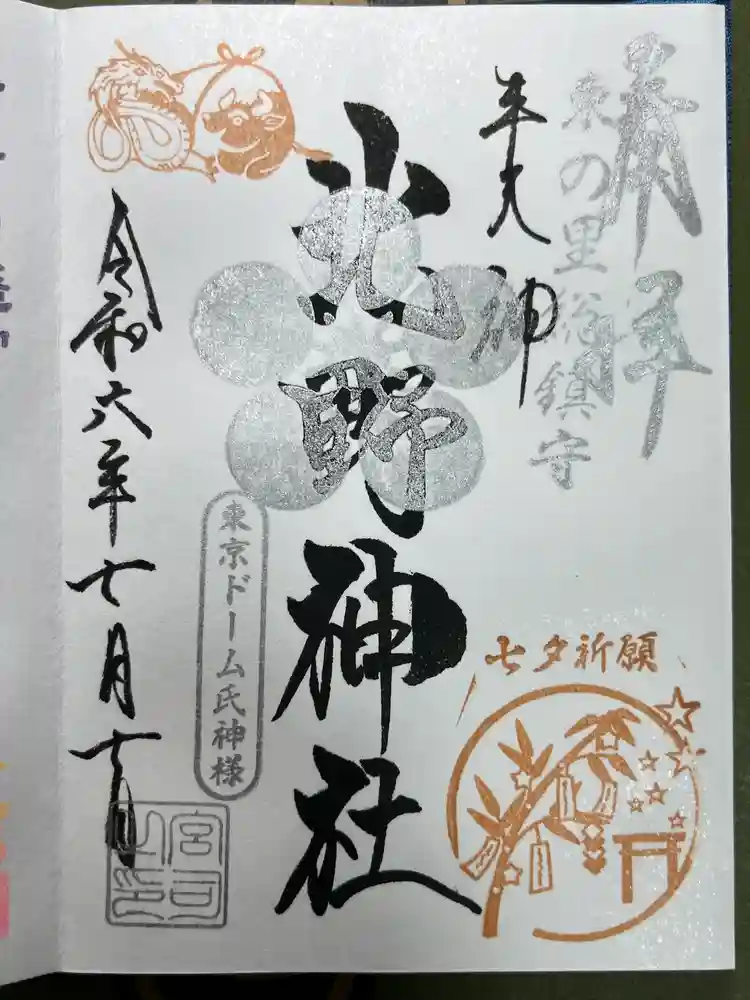 奉拝
東の里総鎮守
牛天神
北野神社
七夕祈願
東京ドーム氏神様
令和六年七月十日
宮司之印